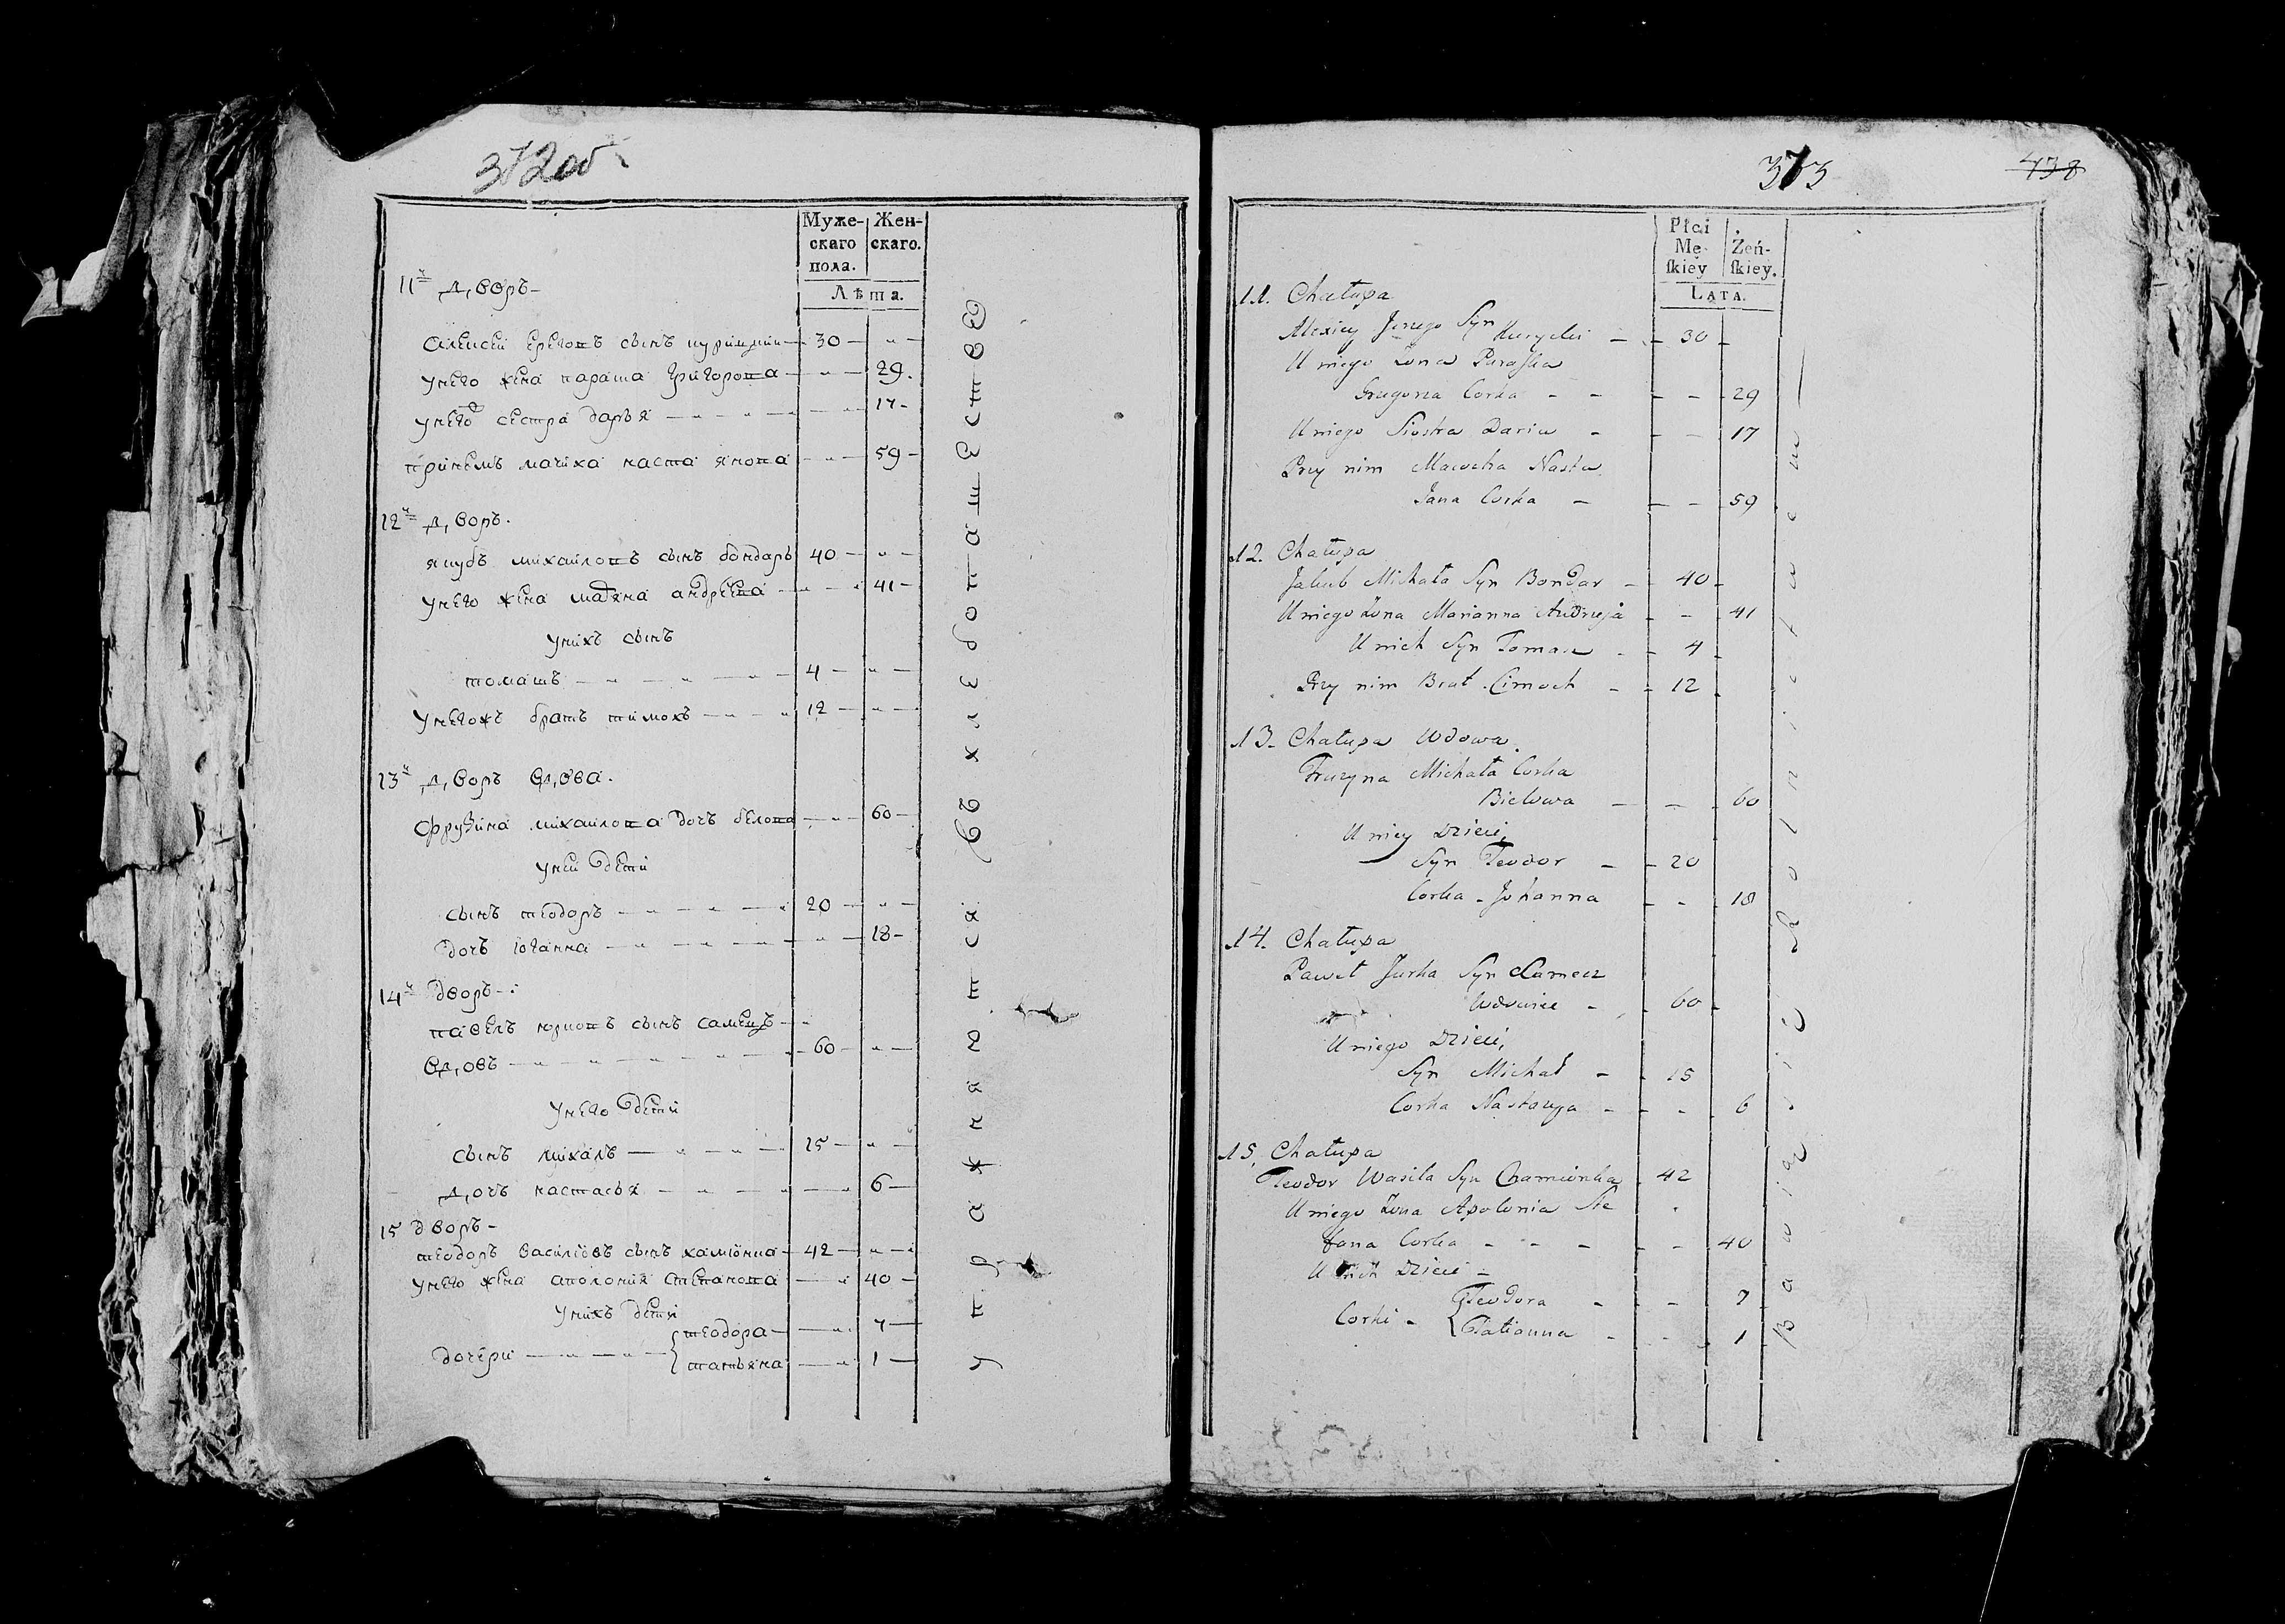 372об
Муже-
скаго
пола.
Жен-
скаго.
Лѣта.
11й дворъ
Алексей Ереговъ сынъ 30 — „ —
унего жена параша Григорова — „ — 29.
унего сестра дарья — „ — „ — 17 —
принемъ мачиха наста янова — „ — 59 —
12й дворъ.
якубъ михайловъ сынъ бондаръ 40 — „ —
унего жена андреева — „ — 41 —
унихъ сынъ
томашъ — „ — „ — 4 — „ —
унегожъ братъ тимохъ — „ — 12 — „ —
13й дворъ вдова.
Фрузина михайлова дочъ белова — „ — 60 —
уней дети
сынъ теодоръ — „ — „ — 20 — „ —
дочъ юганна — „ — „ — 18 —
14й дворъ:
павелъ юрковъ сынъ самецъ —
вдовъ — „ — „ — 60 — „ —
унего дети
сынъ михалъ — „ — „ — 15 — „ —
дочъ настасья — „ — „ — 6 —
15 дворъ —
теодоръ василиевъ сынъ хамiонка — 42 — „ —
унего жена аполония степанова — „ 40 —
унихъ дети
дочери — „ — „ — { теодора — „ 7 —
татьяна — „ 1 —
упражняется въ хлебопашестве
373
438
Płci
Mę-
skiey
Żeń-
skiey.
LATA.
11. Chałupa
Alexiey Jerzego Syn Kurycki — 30 —
U niego Żona Paraska
Gregorza Corka — — 29
U niego Siostra Daria — — 17
Przy nim Macocha Nasta
Jana Corka — — 59
12. Chałupa
Jakub Michała Syn Bondar — 40 —
U niego Żona Marianna Andrzeja — 41
U nich Syn Tomasz — 4 —
Przy nim Brat Cimoch — 12
13. Chałupa Wdowa
Fruzyna Michała Corka
Bielowa — — 60
U niey Dzieci,
Syn Teodor — 20
Corka Johanna — 18
14. Chałupa
Paweł Jurka Syn Samecz
Wdowiec — 60 —
U niego Dzieci,
Syn Michał — 15
Corka Nastazya — — 6
15. Chałupa
Teodor Wasila Syn Chamionka 42
U niego Żona Apolonia Ste
fana Corka — — 40
U nich Dzieci —
Corki — { Teodora — 7
Tatianna — 1
Bawią się Rolnictwem